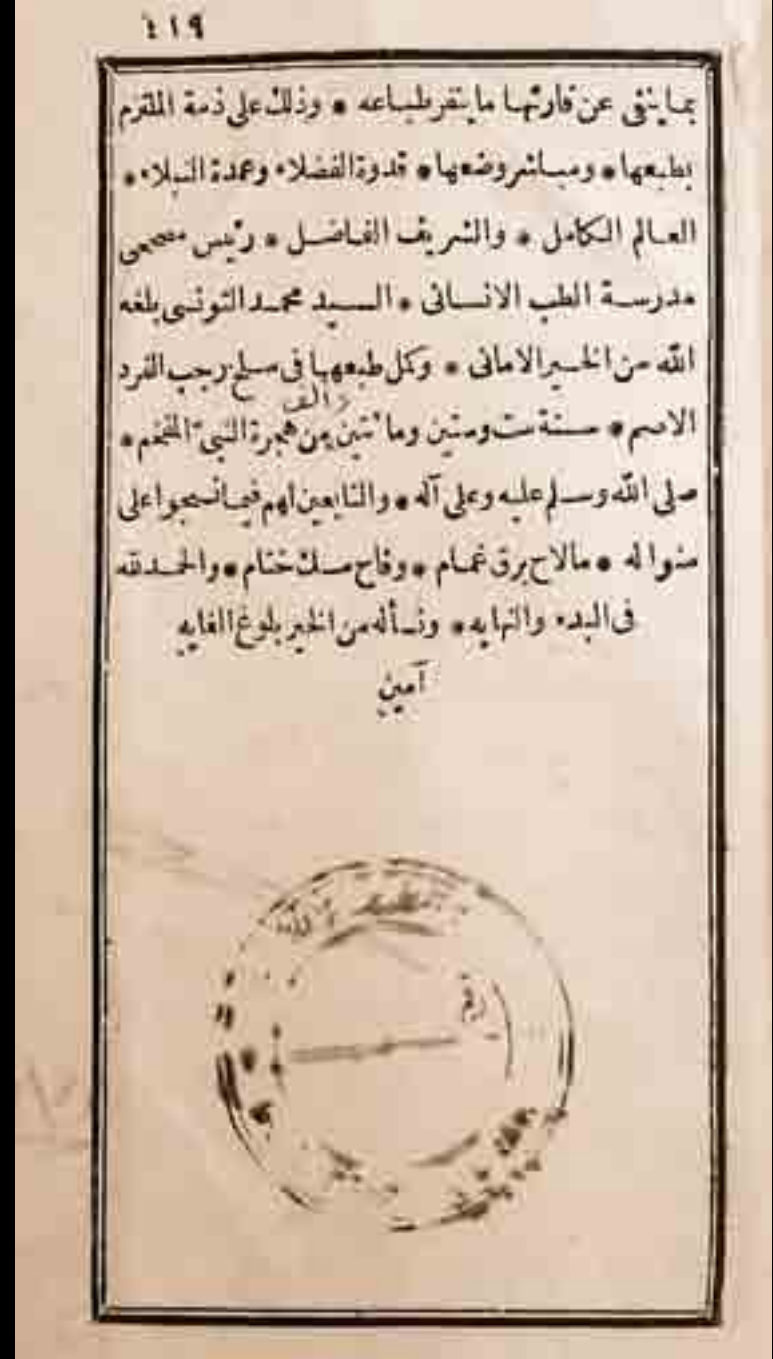 ٤١٩
بما ينفى عن قارئها ما ينفر طباعه * وذلك على ذمة الملتزم
بطبعها * ومباشر وضعها * قدوة الفضلاء وعمدة النبلاء *
العالم الكامل * والشريف الفاضل * رئيس مصححى
مدرسة الطب الانسانى * السيد محمد التونسى بلغه
الله من الخير الامانى * وكمل طبعها فى سلخ رجب الفرد
الاصم * سنة ست وستين ومائتين والف من هجرة النبى المفخم *
صلى الله وسلم عليه وعلى آله * والتابعين لهم فيما نسجوا على
منواله * ما لاح برق غمام * وفاح مسك ختام * والحمد لله
فى البدء والنهايه * ونسأله من الخير بلوغ الغايه
آمين
رقم